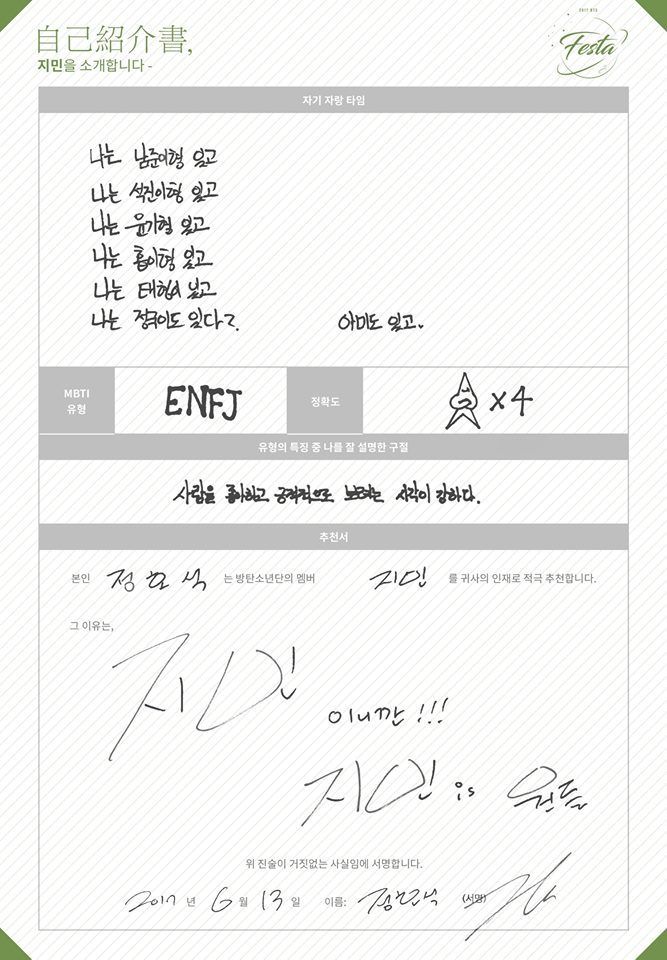 2017 BTS
Festa
自己紹介書,
지민을 소개합니다 -
자기 자랑 타임
나는 남준이형 있고
나는 석진이형 있고
나는 윤기형 있고
나는 홉이형 있고
나는 태형이 있고
나는 정국이도 있다?
아미도 있고.
MBTI
유형
ENFJ
정확도
x 4
유형의 특징 중 나를 잘 설명한 구절
사람을 좋아하고 공적으로 시각이 강하다.
추천서
본인 정호석 는 방탄소년단의 멤버 지민 를 귀사의 인재로 적극 추천합니다.
그 이유는,
지민
이니깐!!!
지민 is 뭔들
위 진술이 거짓없는 사실임에 서명합니다.
2017 년 6 월 13 일 이름: 정호석 (서명)